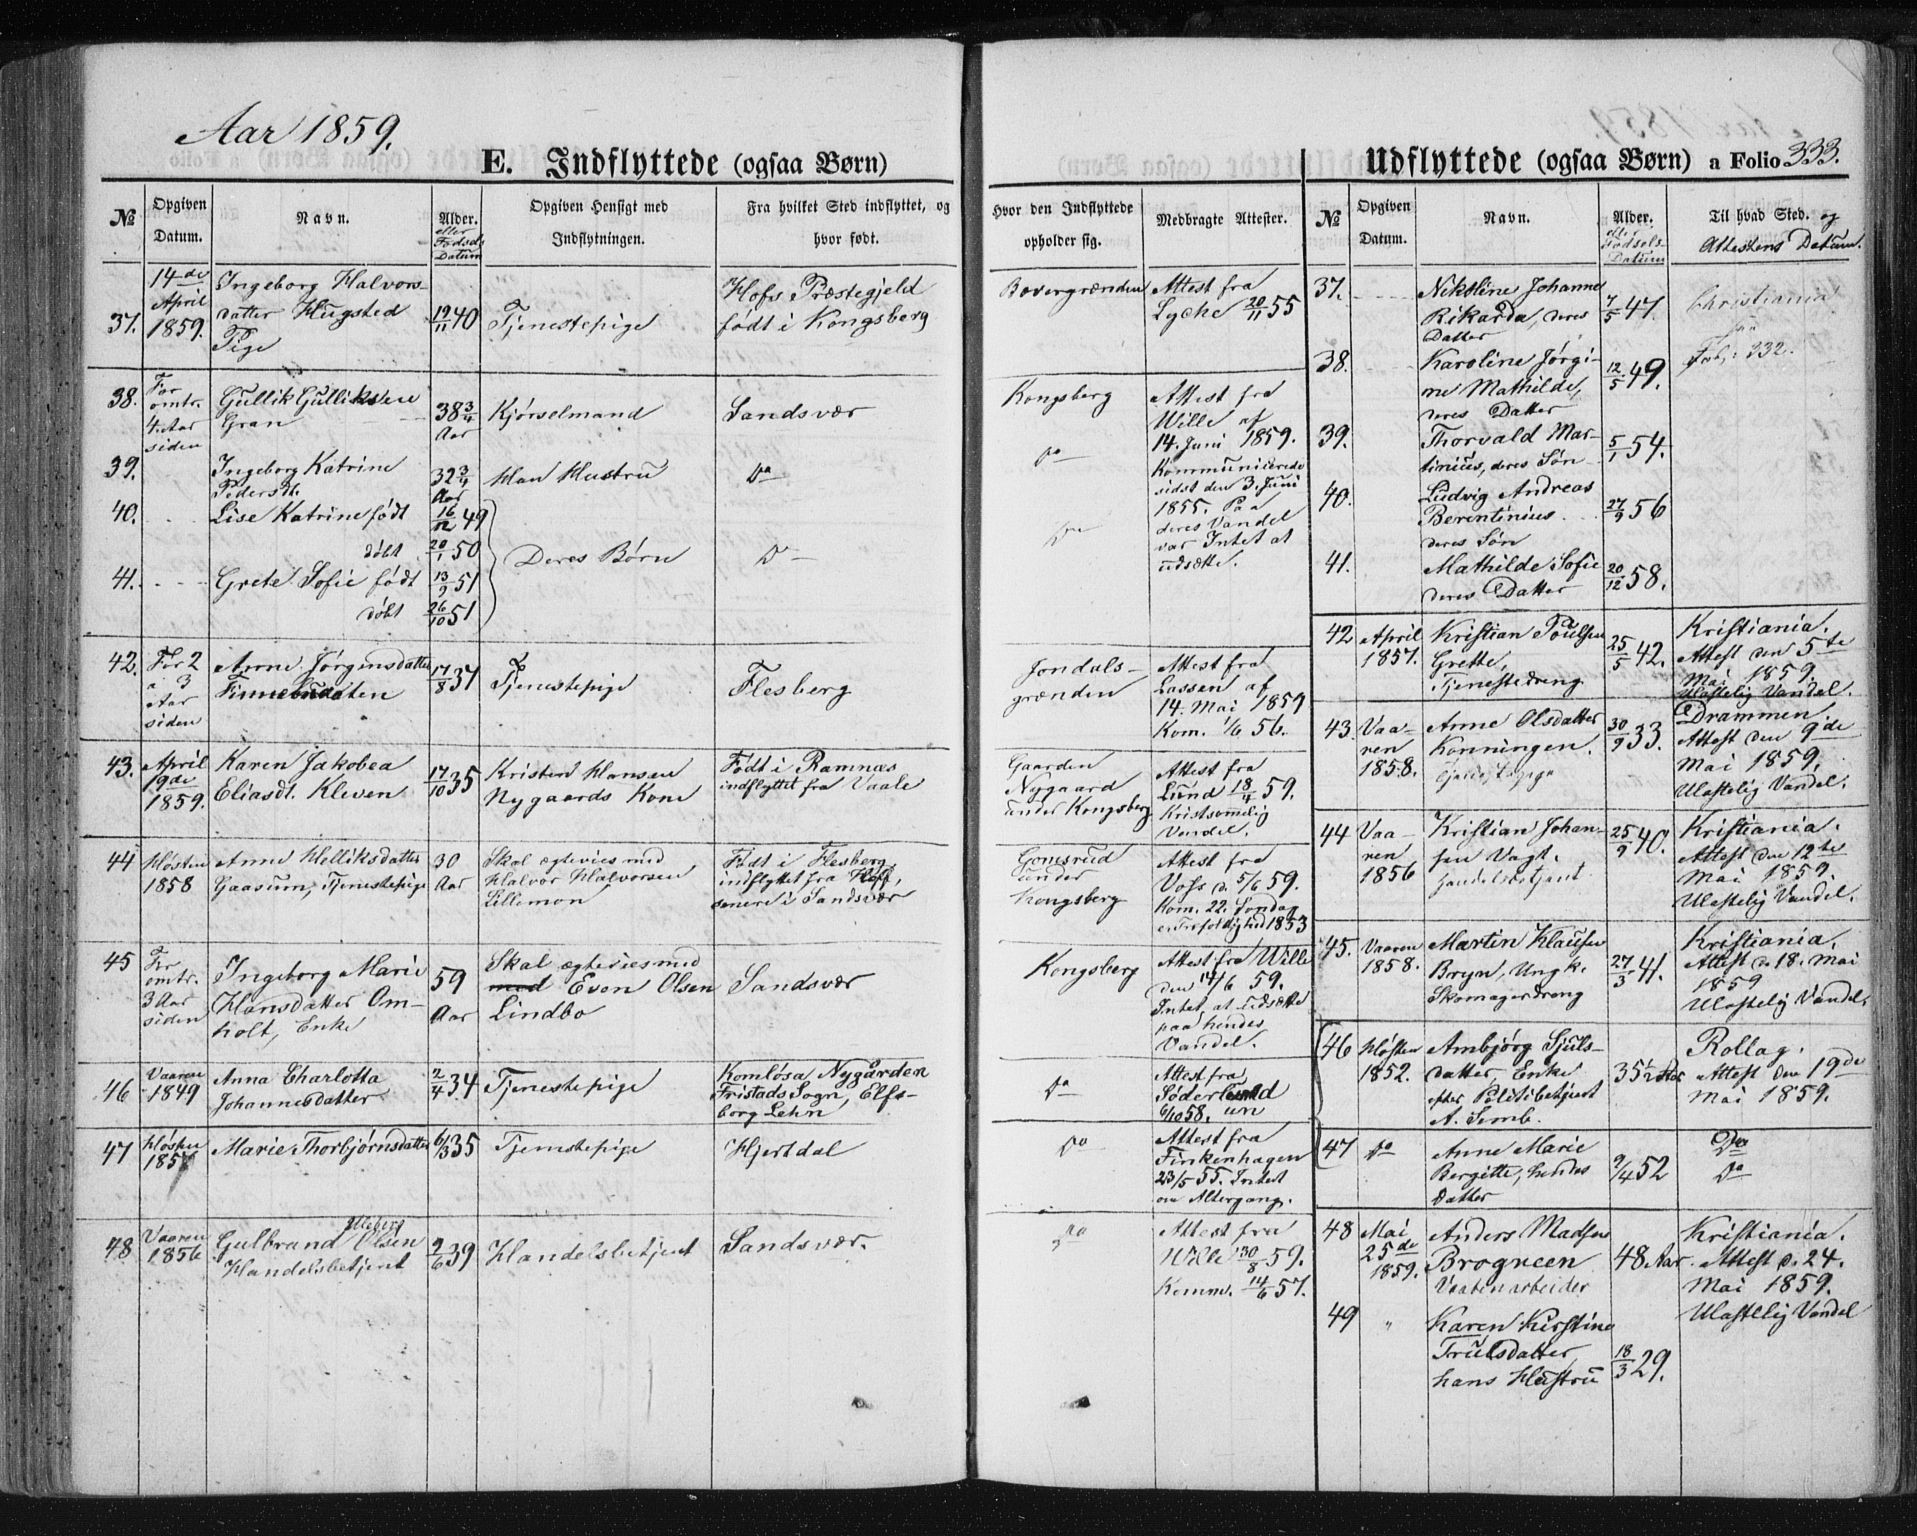 Aar 1859.
E. Indflyttede (ogsaa Børn)
№
Opgiven Datum.
Navn.
Alder. eller Fødsels Datum
Opgiven Hensigt med Indflytningen.
Fra hvilket Sted indflyttet, og hvor født.
37.
14de April 1859.
Ingeborg Halvors-
datter Hugsted
Pige
19/11 40
Tjenestepige
Hofs Præstegjeld
født i Kongsberg
38.
For omtr. 4 Aar siden
Gullik Gulliksen
Gran
38 3/4 Aar
Kjørselmand
Sandsvær
39.
Ingeborg Katrine
Pedersdt.
32 3/4 Aar
Hans Hustru
Do
40.
Lise Katrine født
16/12 49
døbt
20/1 50
Deres Børn
Do
41.
Grete Sofie født
13/9 51
døbt
26/10 51
42.
For 2 a 3 Aar siden
Anne Jørgensdatter
17/8 37
Tjenestepige
Flesberg
43.
April 19de 1859.
Karen Jakobea
Eliasdt. Kleven
17/10 35
Kristen Hansen
Nygaards Kone
Født i Ramnæs
indflyttet fra Vaale
44
Høsten 1858
Anne Helliksdatter
Gaasum, Tjenestepige
30 Aar
Skal ægtevies med
Halvor Halvorsen
Lillemon
Født i Flesberg
indflyttet fra Hoff,
senere i Sandsvær
45
For omtr. 3 Aar siden
Ingeborg Marie
Hansdatter Om-
holt, Enke
59 Aar
Skal ægtevies med
med Even Olsen
Lindbo
Sandsvær
46
Vaaren 1849
Anna Charlotta
Johannesdatter
2/4 34
Tjenestepige
Komlösa, Nygården
Fristads Sogn, Elfs-
borg Lehn
47
Høsten
Marie Thorbjørnsdatter
6/3 35
Tjenestepige
Hjertdal
48
Vaaren 1856
Gulbrand Olsen
Handelsbetjent
9/6 39
Handelsbetjent
Sandsvær.
Hvor den Indflyttede opholder sig.
Medbragte Attester.
Bævergrænden
Attest fra
Lyche 20/11 55
Kongsberg
Do
Do
Attest fra
Wille af
14. Juni 1859.
Kommunicerede
sidst den 3. Juni
1855. Paa
deres Vandel
var Intet at
udsætte.
Jondals-
grænden
Attest fra
Lassen af
14. Mai 1859
Kom. 1/6 56.
Gaarden
Nygaard
under Kongsberg
Attest fra
Lund 18/4 59.
Kristsømelig
Vandel.
under
Kongsberg
Attest fra
Voss d. 5/6 59.
Kom. 22. Søndag
e. Trefoldighed 1853
Kongsberg
Attest fra Wille
den 14/6 59.
Intet at udsætte
paa hendes
Vandel.
Do
Attest fra
6/10 58.
Do
Attest fra
Finkenhagen
23/5 55. Intet
om Altergang.
Do
Attest fra
Wille 30/8 59.
Komm. 14/6 57.
Udflyttede (ogsaa Børn) a Folio 333.
№
Opgiven Datum.
Navn.
Alder. eller Fødsels-Datum
Til hvad Sted. og Attestens Datum.
37.
Nikoline Johanne
Rikarda, deres
Datter
7/5 47.
Christiania
Fol. 332.
38.
Karoline Jørgi-
ne Mathilde,
deres Datter
12/5 49.
39.
Thorvald Mar-
tinius, deres Søn
5/1 54.
40.
Ludvig Andreas
Berentinius
deres Søn
27/9 56
41.
Mathilde Sofie
deres Datter
20/12 58.
42
April 1857.
Kristian Poulsen
Grette,
Tjenestedreng
25/5 42.
Kristiania.
Attest den 5te
Mai 1859.
Ulastelig Vandel.
43.
Vaaren 1858.
Anne Olsdatter
Konningen.
Tjenestepige
30/9 33.
Drammen
Attest den 9de
Mai 1859.
Ulastelig Vandel.
44
Vaaren 1856
Kristian Johan-
sen Vagt.
Handelsbetjent
25/9 40.
Kristiania.
Attest den 12te
Mai 1859.
Ulastelig Vandel.
45.
Vaaren 1858.
Martin Klausen
Bryn, Ungk.
Skomagerdreng
27/3 41.
Kristiania.
Attest d. 18. Mai
1859
Ulastelig Vandel.
46
Høsten 1852.
Ambjørg Sjuls-
datter Enke
efter Politibetjent
A. Semb.
35 1/2 Aar
Rollag.
Attest den 19de
Mai 1859.
47
Do
Anne Marie
Bergitte, hendes
Datter
9/4 52
Do
Do
48
Mai 25de 1859.
Anders Madsen
Brogneen
Vaabenarbeider
48 Aar
Kristiania.
Attest d. 24.
Mai 1859.
Ulastelig Vandel
49
"
Karen Kirstine
Trulsdatter
hans Hustru
18/3 29.